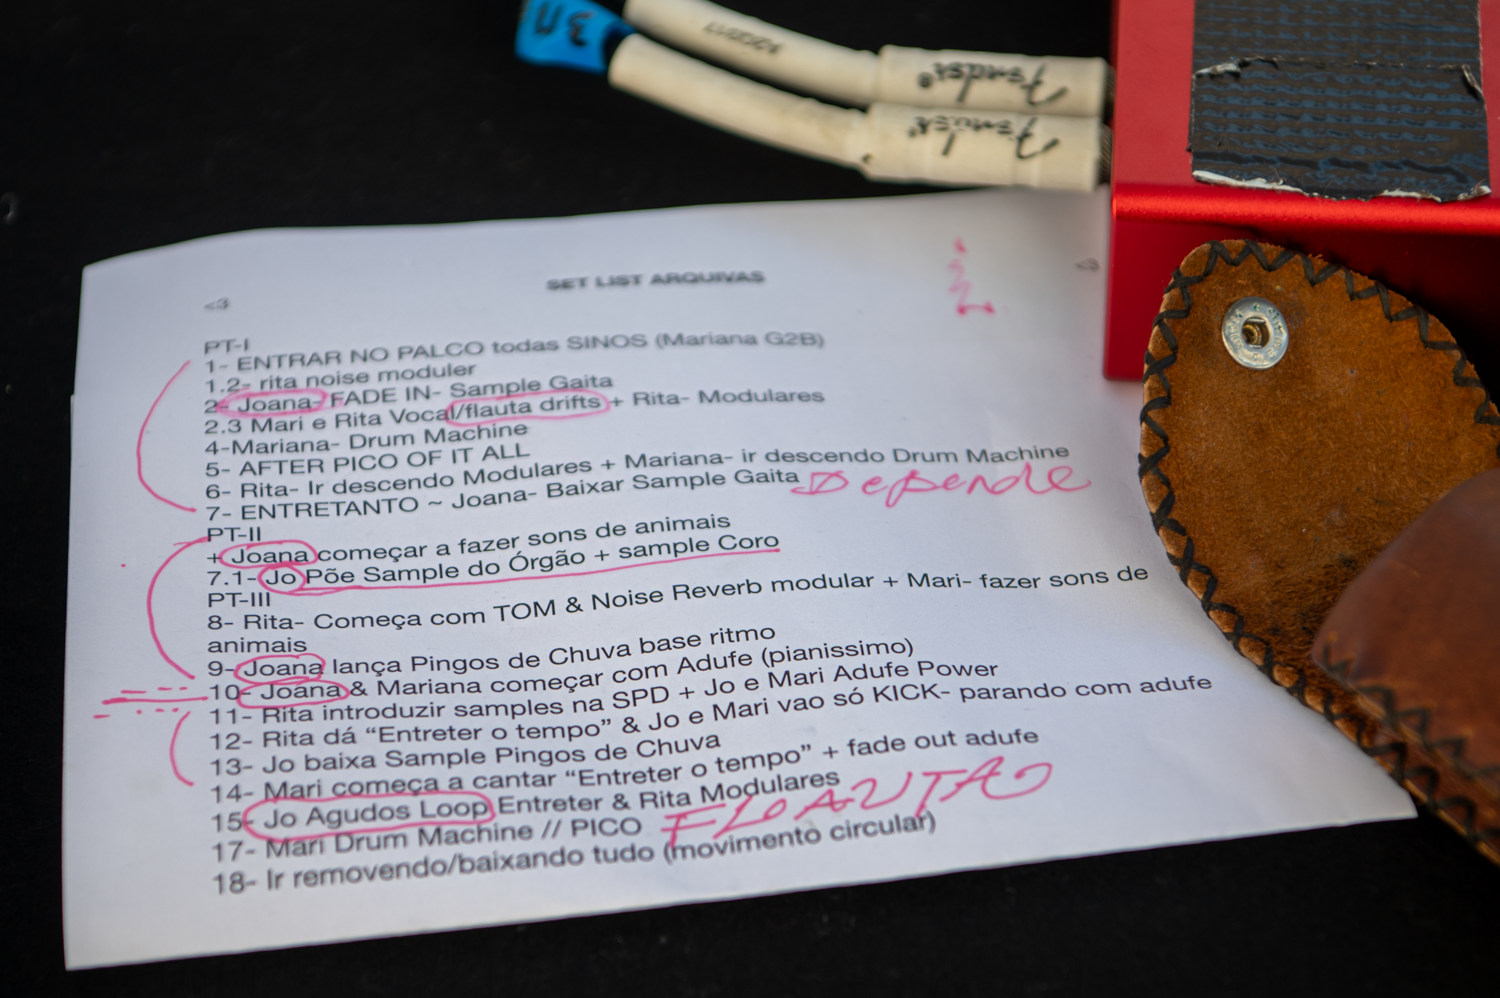 3M
Fender
Fender
SET LIST ARQUIVAS
<3
<3
PT-I
1- ENTRAR NO PALCO todas SINOS (Mariana G2B)
1.2- rita noise moduler
2- Joana- FADE IN- Sample Gaita
2.3 Mari e Rita Vocal/flauta drifts + Rita- Modulares
4-Mariana- Drum Machine
5- AFTER PICO OF IT ALL
6- Rita- Ir descendo Modulares + Mariana- ir descendo Drum Machine
7- ENTRETANTO ~ Joana- Baixar Sample Gaita Depende
PT-II
+ Joana começar a fazer sons de animais
7.1- Jo Põe Sample do Órgão + sample Coro
PT-III
8- Rita- Começa com TOM & Noise Reverb modular + Mari- fazer sons de
animais
9- Joana lança Pingos de Chuva base ritmo
10- Joana & Mariana começar com Adufe (pianissimo)
11- Rita introduzir samples na SPD + Jo e Mari Adufe Power
12- Rita dá “Entreter o tempo” & Jo e Mari vao só KICK- parando com adufe
13- Jo baixa Sample Pingos de Chuva
14- Mari começa a cantar “Entreter o tempo” + fade out adufe
15- Jo Agudos Loop Entreter & Rita Modulares
17- Mari Drum Machine // PICO FLOAUTAO
18- Ir removendo/baixando tudo (movimento circular)